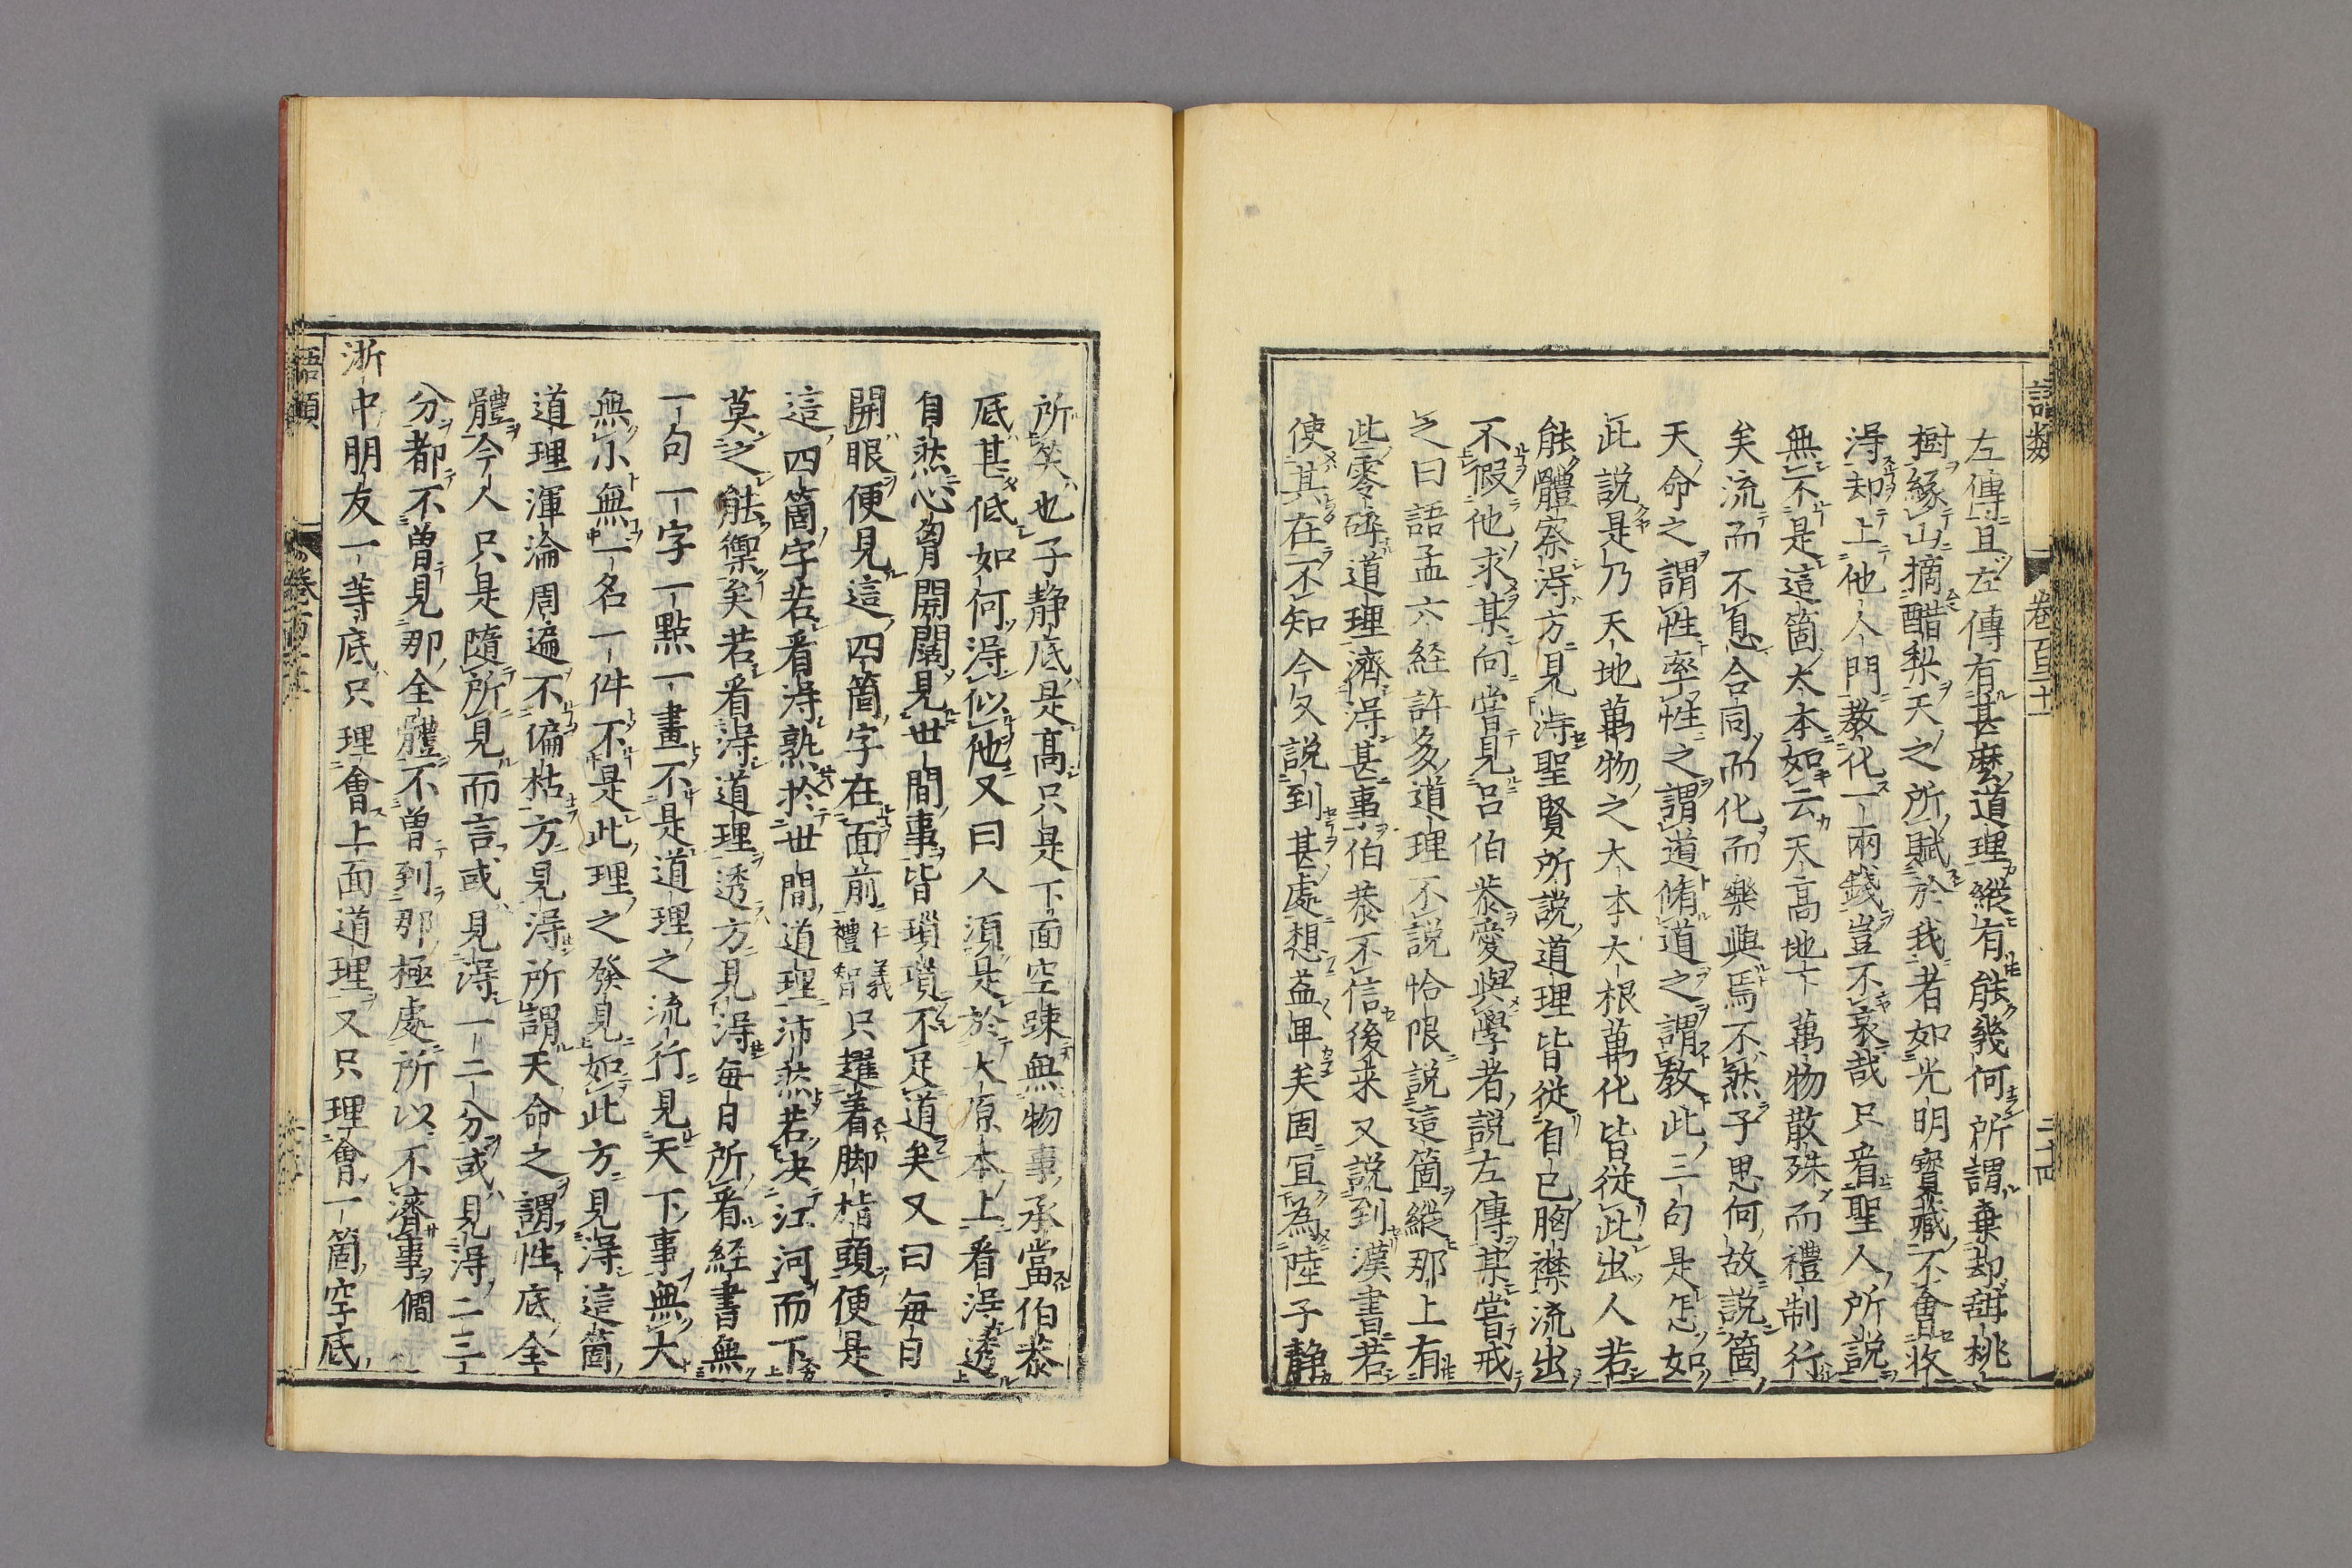 語類 卷百二十一 三十四
左傳且左傳有甚麽道理縱有能幾何所謂棄却甜桃
樹緣山摘醋梨天之所賦於我者如光明寶藏不會收
淂却上他人門教化一兩錢豈不哀哉只看聖人所説
無不是這箇大本如云天高地下萬物散殊而禮制行
矣流而不息合同而化而樂興焉不然子思何故説箇
天命之謂性率性之謂道脩道之謂教此三句是怎如
此説是乃天地萬物之大本大根萬化皆從此出人若
能體察淂方見淂聖賢所説道理皆從自己胸襟流出
不假他求某向嘗見呂伯恭愛與學者説左傳某嘗戒
之曰語孟六経許多道理不説恰限説這箇縱那上有
些零碎道理濟淂甚事伯恭不信後来又説到漢書若
使其在不知今又説到甚處想益卑矣固宜為陸子靜
所笑也子靜底是高只是下面空踈無物事承當伯恭
底甚低如何淂似他又曰人須是於大原本上看淂透
自然心胷開闊見世間事皆瑣瑣不足道矣又曰每日
開眼便見這四箇字在面前仁義禮智只趯着脚指頭便是
這四箇字若看淂熟於世間道理沛然若决江河而下
莫之能禦矣若看淂道理透方見淂每日所看経書無
一句一字一點一畫不是道理之流行見天下事無大
無小無一名一件不是此理之發見如此方見淂這箇
道理渾淪周遍不偏枯方見淂所謂天命之謂性底全
體今人只是隨所見而言或見淂一二分或見淂二三
分都不曽見那全體不曽到那極處所以不濟事僩
浙中朋友一等底只理會上面道理又只理會一箇空底
語類 卷百二十一